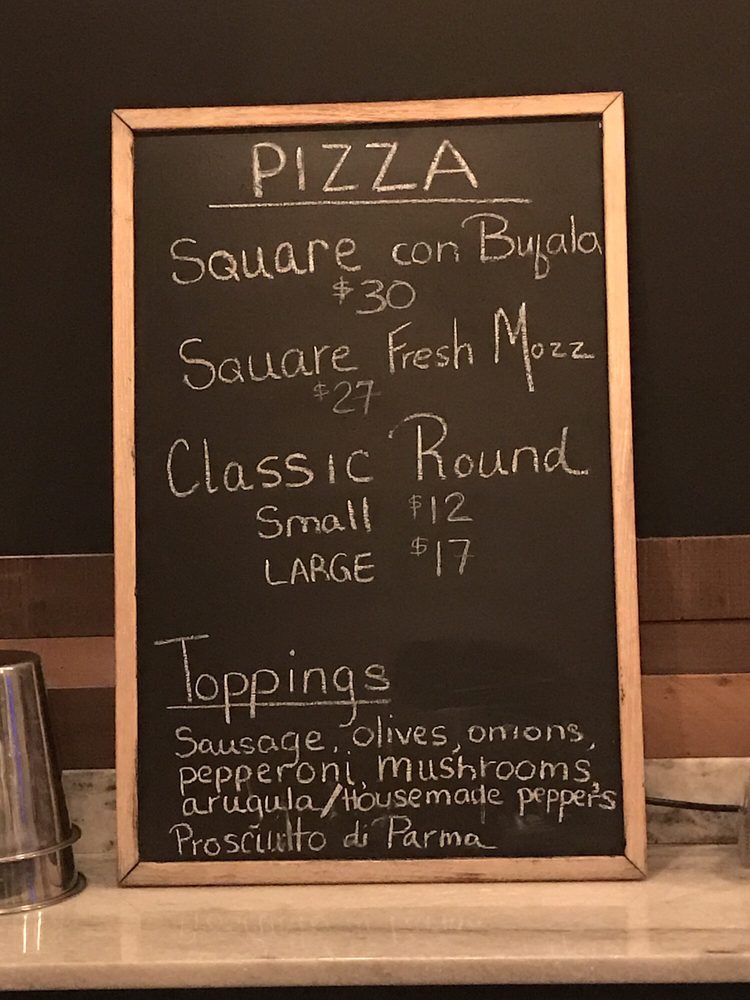 PIZZA
Square con Bufala
$30
Square Fresh Mozz
$27
Classic Round
Small $12
LARGE $17
Toppings
Sausage, olives, onions,
pepperoni, mushrooms,
arugula/Housemade peppers
Prosciutto di Parma